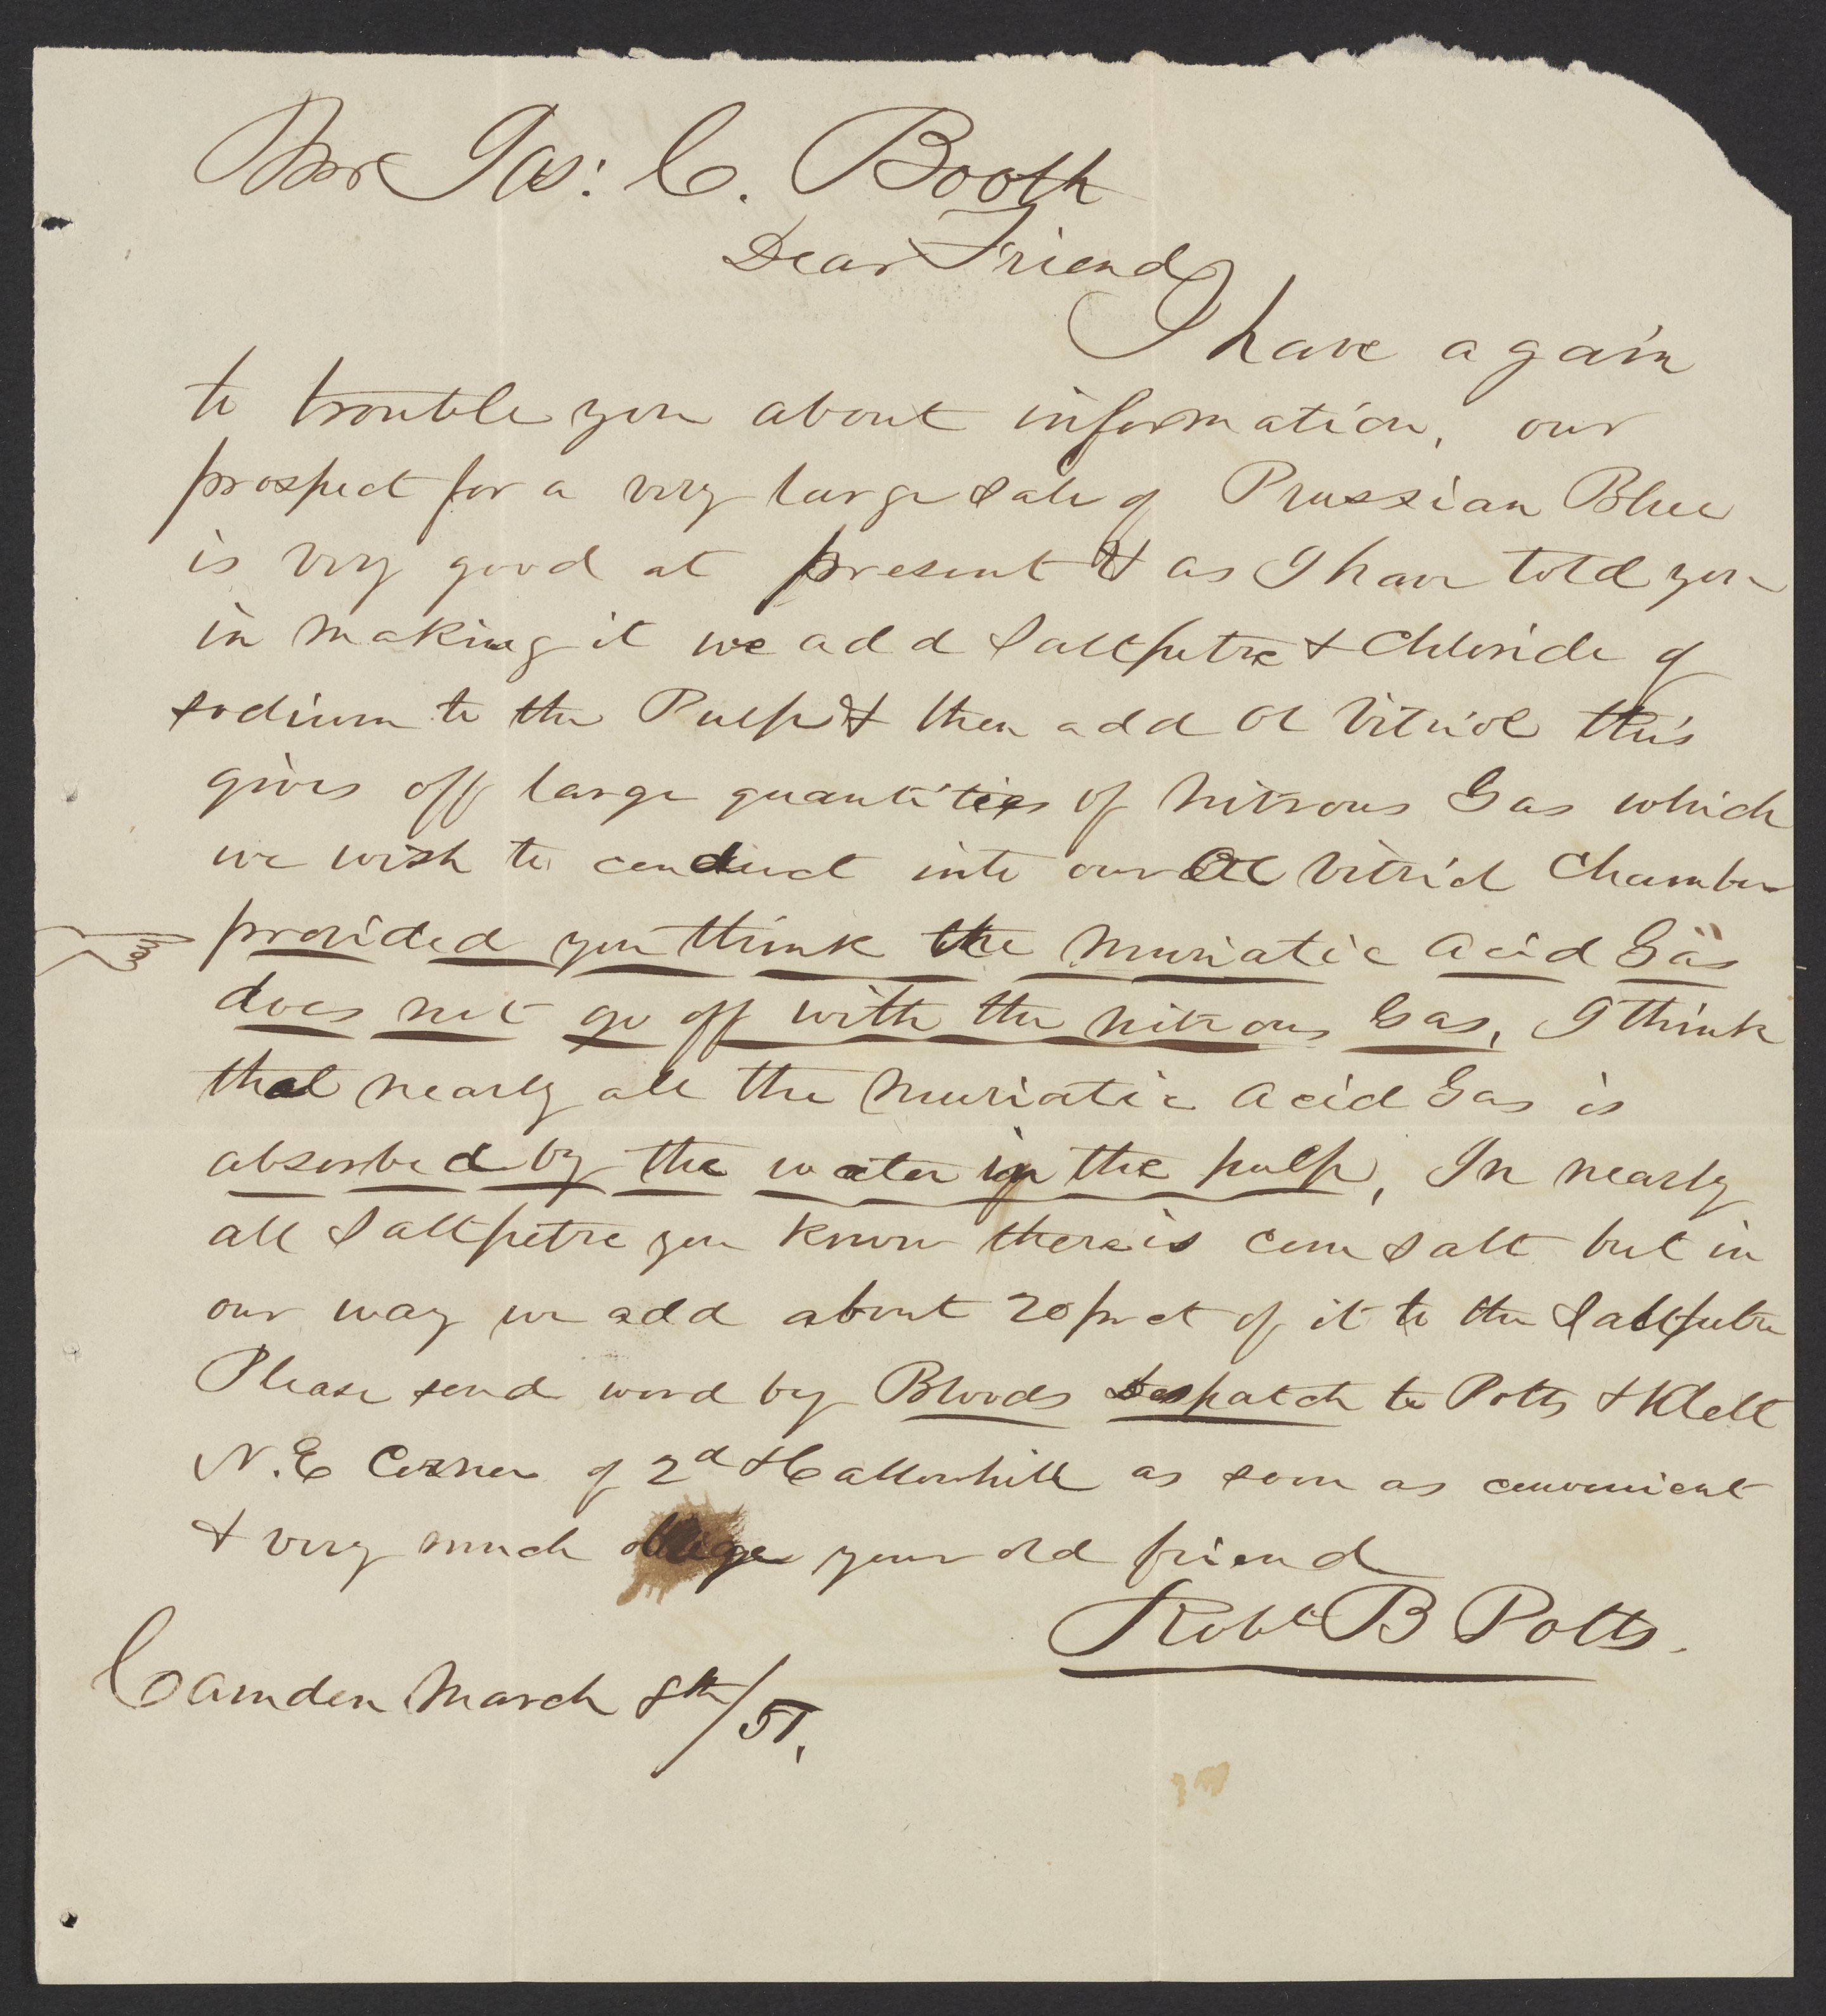 Mr Jas: C. Booth
Dear Friend
I have again
to trouble you about information, our
prospect for a very large sale of Prussian Blue
is very good at present & as I have told you
in making it we add Saltpetre & Chloride of
sodium to the Pulp & then add Ol Vitriol this
gives off large quantities of Nitrous Gas which
we wish to conduct into our Ol Vitriol Chamber
provided you think the Muriatic Acid Gas
does not go off with the nitrous Gas, I think
that nearly all the Muriatic Acid Gas is
absorbed by the water in the pulp, In nearly
all Saltpetre you know there is com Salt but in
our way we add about 20 pr ct of it to the Saltpetre
Please send word by Bloods Despatch to Potts & Klett
N.E Corner of 2d & Callowhill as soon as convenient
& very much oblige your old friend
Robt B Potts.
Camden March 8th/51,